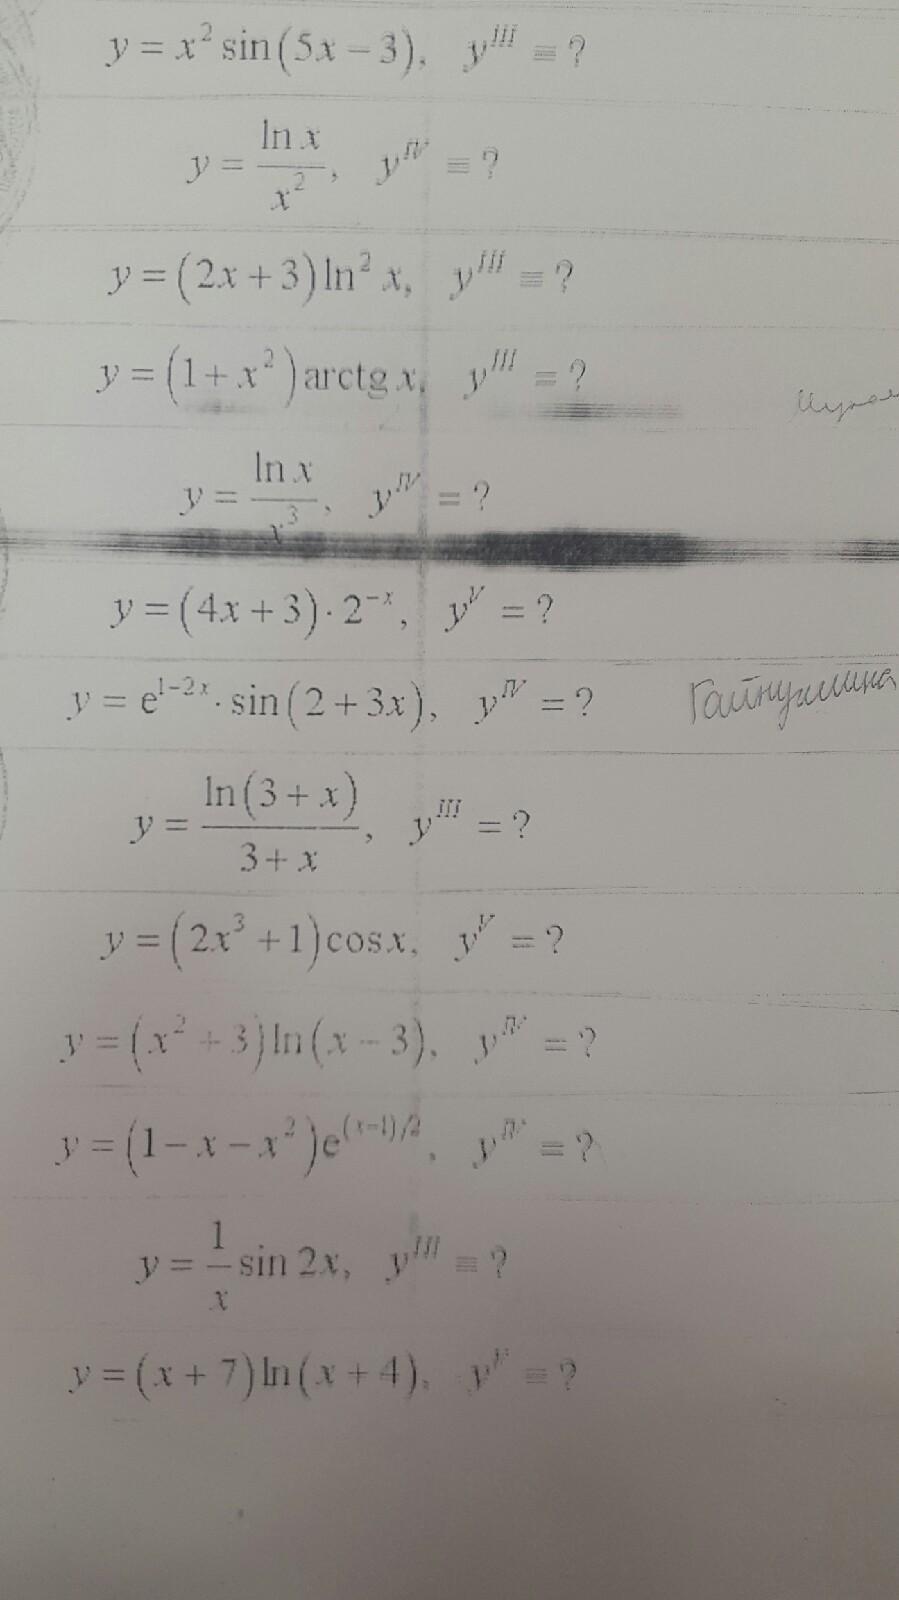 y = x² sin(5x − 3), y^III = ?
y = ln x / x², y^IV = ?
y = (2x + 3) ln² x, y^III = ?
y = (1 + x²) arctg x, y^III = ?
y = ln x / x³, y^IV = ?
y = (4x + 3) · 2^(−x), y^V = ?
y = e^(1−2x) · sin(2 + 3x), y^IV = ?
y = ln(3 + x) / (3 + x), y^III = ?
y = (2x³ + 1) cos x, y^V = ?
y = (x² + 3) ln(x − 3), y^IV = ?
y = (1 − x − x²) e^((x−1)/2), y^IV = ?
y = 1/x sin 2x, y^III = ?
y = (x + 7) ln(x + 4), y^V = ?